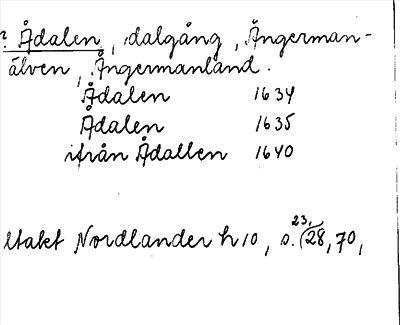 ? Ådalen, dalgång, Ångerman-
älven, Ångermanland.
Ådalen 1634
Ådalen 1635
ifrån Ådallen 1640
ltakt Nordlander h 10, s. 23, (28, 70,